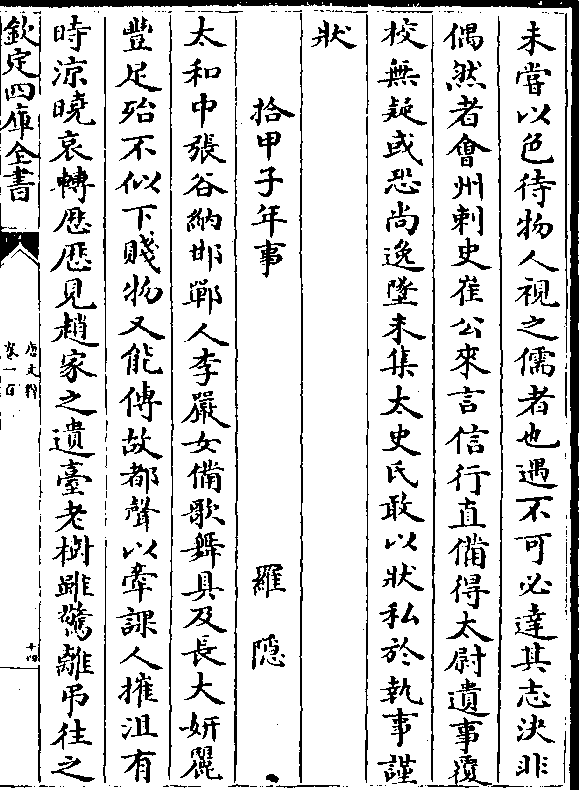 未嘗以色待物人視之儒者也遇不可必達其志決非
偶然者會州刺史崔公來言信行直備得太尉遺事覆
校無疑或恐尚逸墜未集太史氏敢以狀私於執事謹
狀
拾甲子年事 羅隠
太和中張谷納邯鄲人李嚴女備歌舞具及長大妍麗
豐足殆不似下賤物又能傳故都聲以牽課人摧沮有
時涼曉哀轉歴歴見趙家之遺臺老樹雖驚離弔往之
欽定四庫全書
唐文粹
卷一百
十四